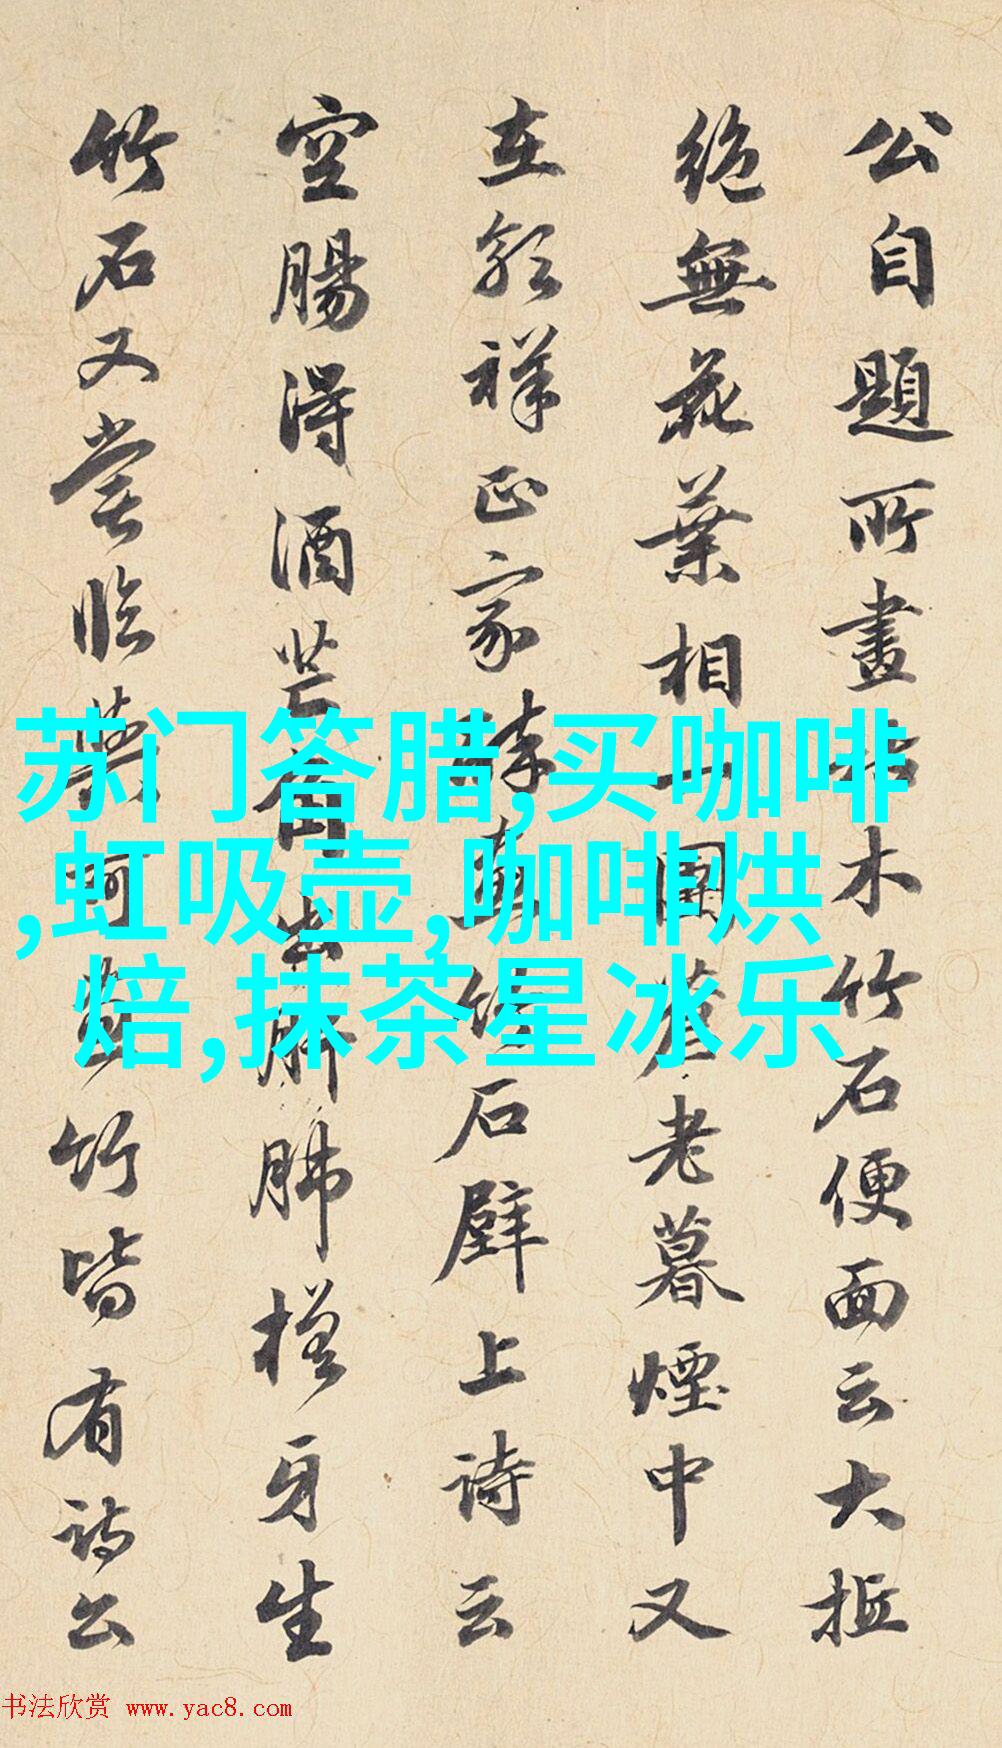 公自題所畫古木竹石便面云大抵
絶無花葉相一團蒼老暮煙中又
在郭祥正家醉畫竹石壁上詩云
空腸得酒芒角出肝肺槎牙生
竹石又嘗臨葉畫竹皆有詩公
苏门答腊,买咖啡
,虹吸壶,咖啡烘
焙,抹茶星冰乐
书法欣赏 www.yac8.com